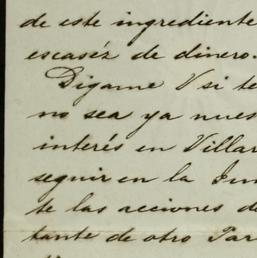 de este ingrediente
escaséz de dinero.
Digame V si te
no sea ya nues
interés en Villar
seguir en la Jun
te las acciones de
tante de otro Par